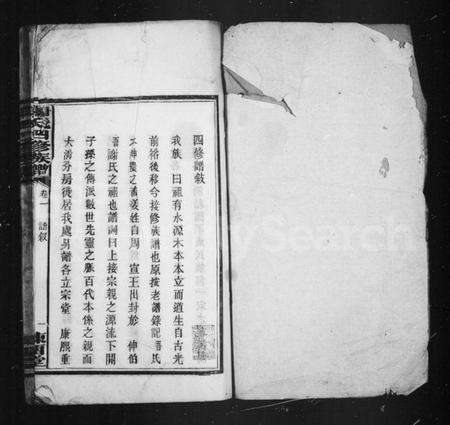 四修譜敘
我族 曰祖有水源木本本立而道生自古光
前裕後移今接修族譜也原按老譜錄記 氏
神農之裔姜姓自周 宣王出封於 申伯
謝氏之祖也譜詞曰上接宗親之源流下開
子孫之傳派數世先靈之脈百代本係之親而
大湾分房徙居我處另譜各立宗堂 康熙重
氏四修族譜
卷一
譜敘
一